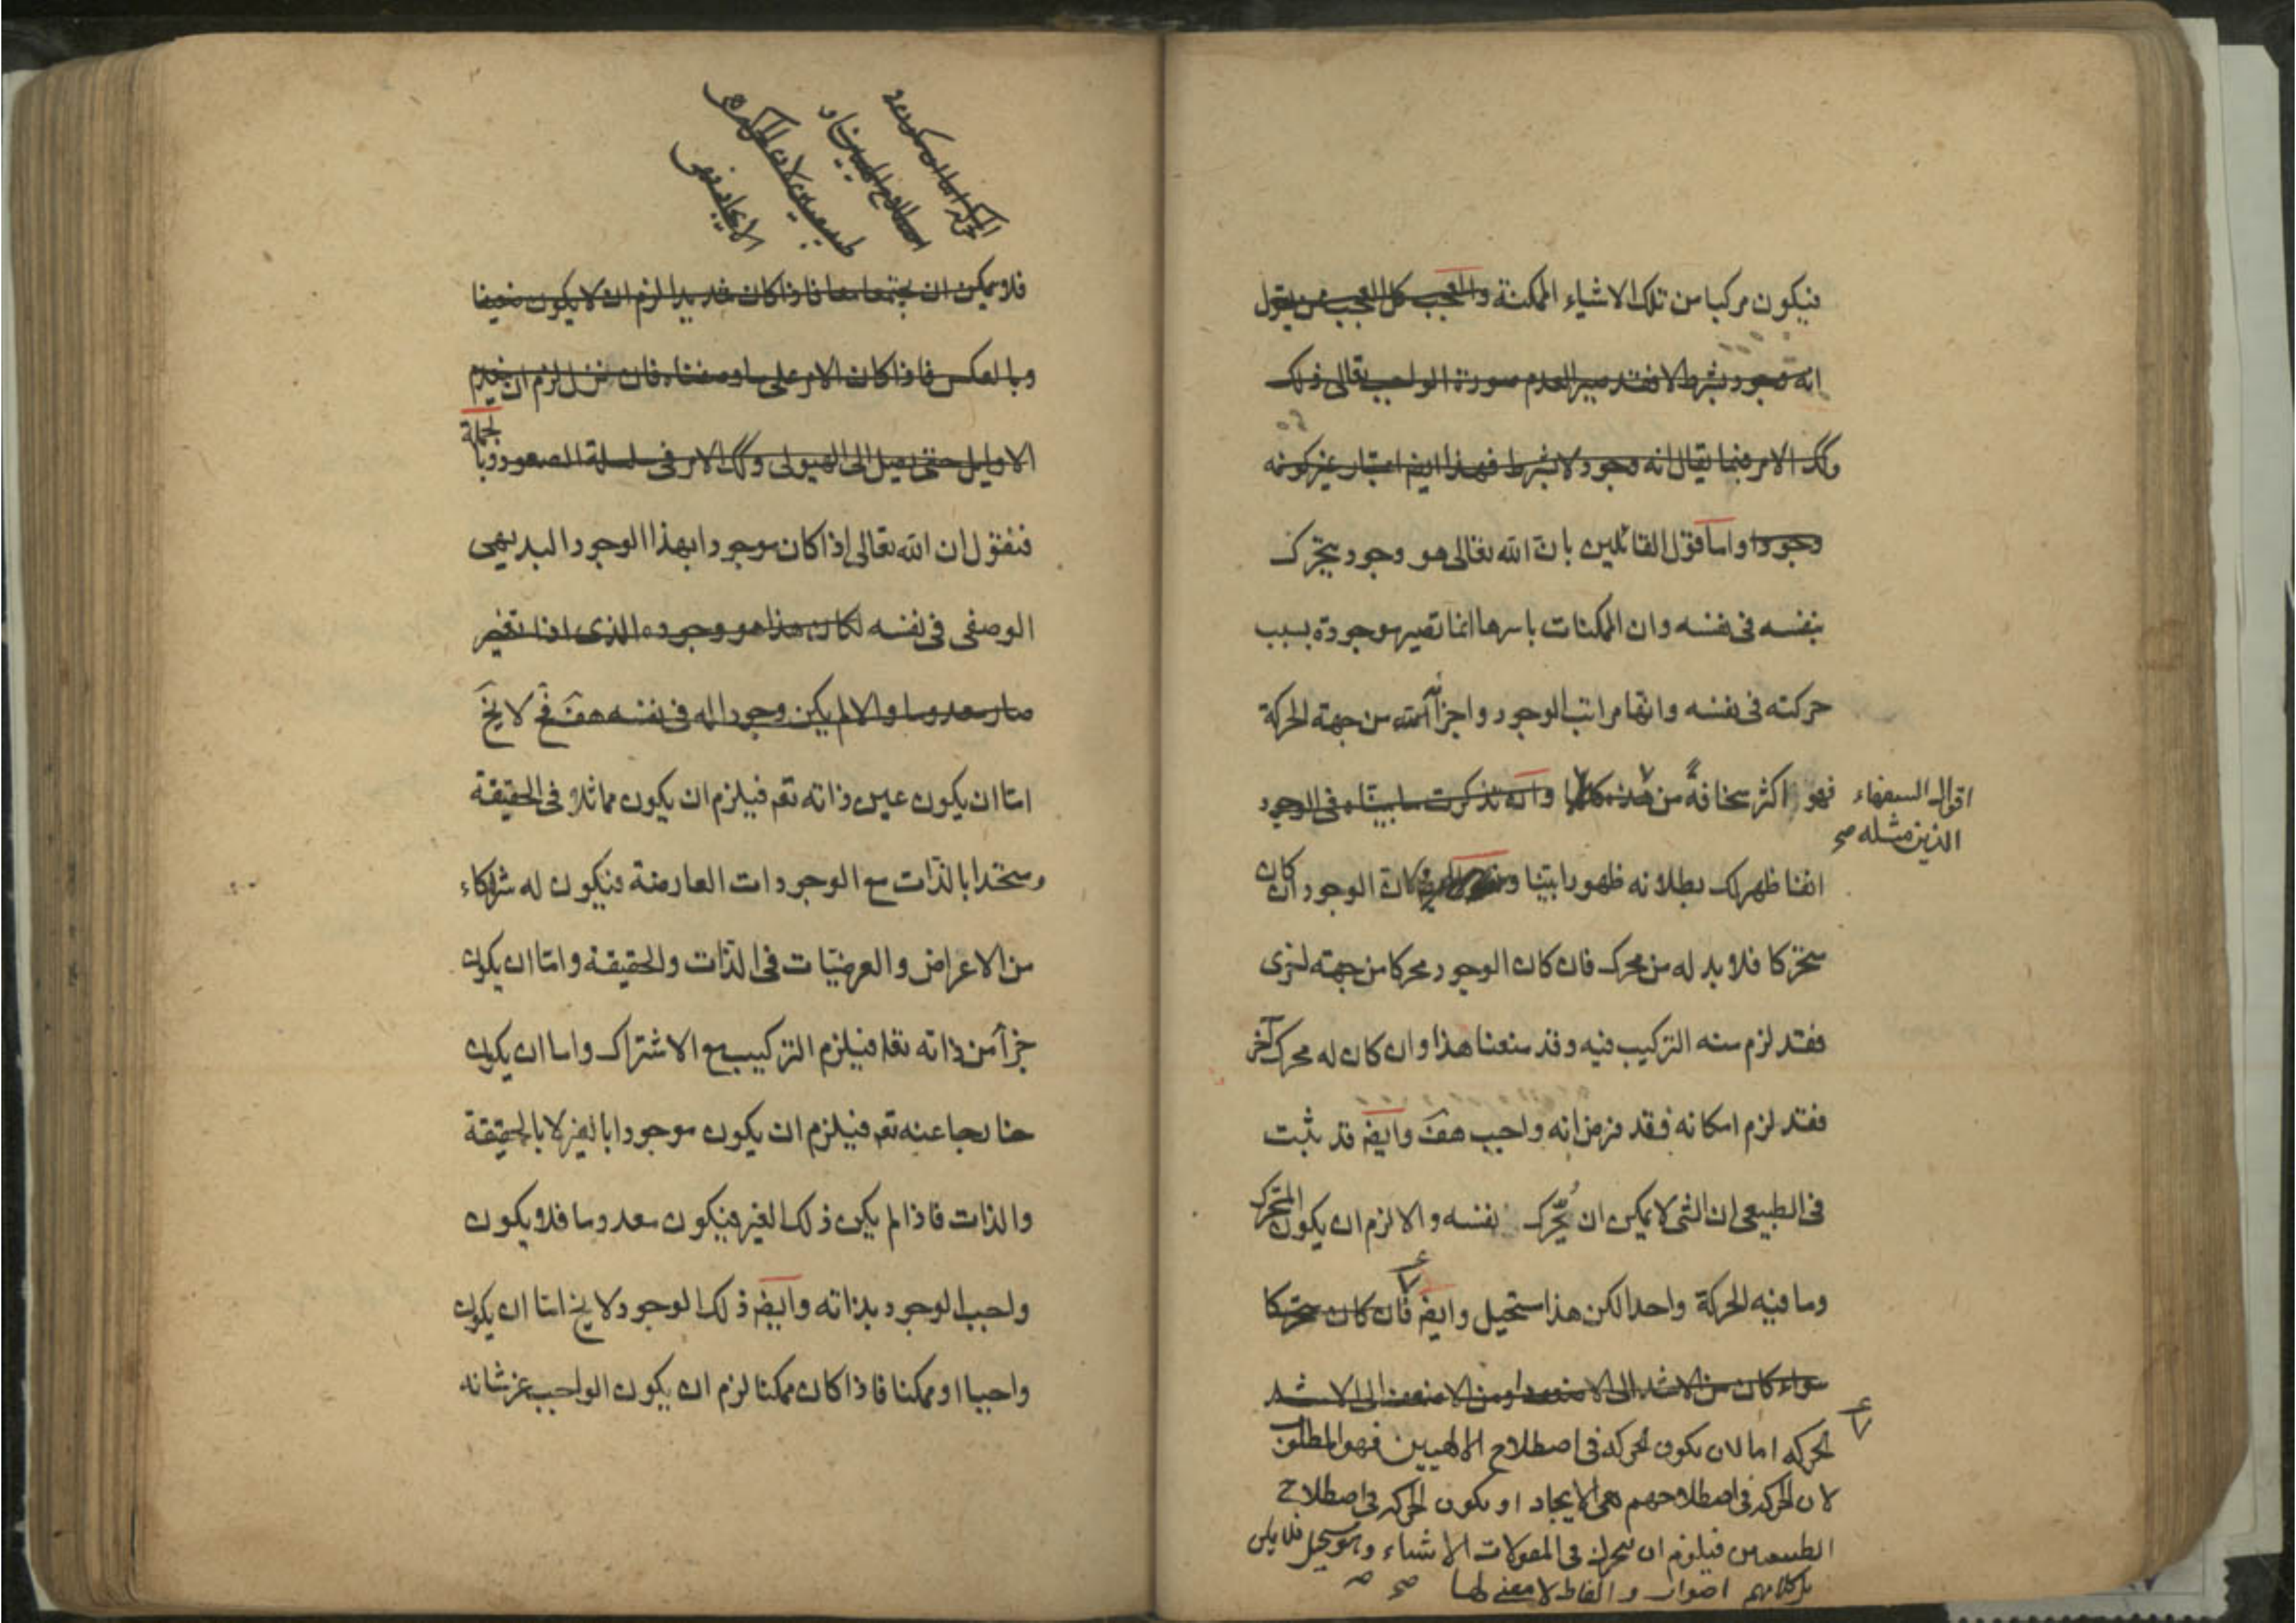 فيكون مركبا من تلك الاشياء الممكنة والعجب كل العجب ممن يقول
انه وجود بشرط لا فقد صير العدم صورة الواجب تعالى ذلك
وكك الامر فيما يقال انه وجود لا بشرط فهذا ايض اعتبار غير كونه
وجودا واما قول القائلين بان الله تعالى هو وجود يتحرك
بنفسه فى نفسه وان الممكنات باسرها انما تصير موجودة بسبب
حركته فى نفسه وانها مراتب الوجود واجزآئه من جهة الحركة
فهو اكثر سخافةً من وان تذكرت ما بيناه فى الوجود
اقوال السفهاء
الذين مثله صح
انفا ظهر لك بطلانه ظهورا بيّنا الوجود ان كان
متحركا فلا بد له من محرك فان كان الوجود محركا من جهة اخرى
فقد لزم منه التركيب فيه وقد منعنا هذا وان كان له محرك آخر
فقد لزم امكانه فقد فرض انه واجب هف وايض قد ثبت
فى الطبيعى ان الشى لا يمكن ان يُحرّك نفسه والا لزم ان يكون المتحرك
وما فيه الحركة واحدا لكن هذا مستحيل وايض فان كان متحركا
سواء كان من الاشد الى الاضعف او من الاضعف الى الاشد
الحركه اما لان يكون الحركه فى اصطلاح الالهيين فهو المطلوب
لان الحركه فى اصطلاحهم هى الايجاد او يكون الحركه فى اصطلاح
الطبيعيين فيلزم ان يتحرك فى المقولات الاشياء وهو مستحيل
كلامهم اصوات والفاظ لا معنى لها صح
فلا يمكن ان يجتمعا معا فاذا كان شديدا لزم ان لا يكون ضعيفا
وبالعكس فاذا كان الامر على ما وصفناه فان تنزل لزم ان ينعدم
الاوايل حتى يصل الى الهيولى وكك الامر فى سلسلة الصعود وبالجملة
فنقول ان الله تعالى اذا كان موجودا بهذا الوجود البديهى
الوصفى فى نفسه لكان هذا هو وجوده الذى اذا تغير
صار معدوما والا لم يكن وجودا له فى نفسه هف فح لا يخ
امّا ان يكون عين ذاته تعم فيلزم ان يكون مماثلا فى الحقيقة
ومتحدا بالذات مع الوجودات العارضة فيكون له شركاء
من الاعراض والعرضيّات فى الذّات والحقيقة وامّا ان يكون
جزآً من ذاته تعا فيلزم التركيب مع الاشتراك واما ان يكون
خارجا عنه تعم فيلزم ان يكون موجودا بالغير لا بالحقيقة
والذات فاذا لم يكن ذلك الغير فيكون معدوما فلا يكون
واجب الوجود بذاته وايض ذلك الوجود لا يخ امّا ان يكون
واجبا او ممكنا فاذا كان ممكنا لزم ان يكون الواجب عز شانه